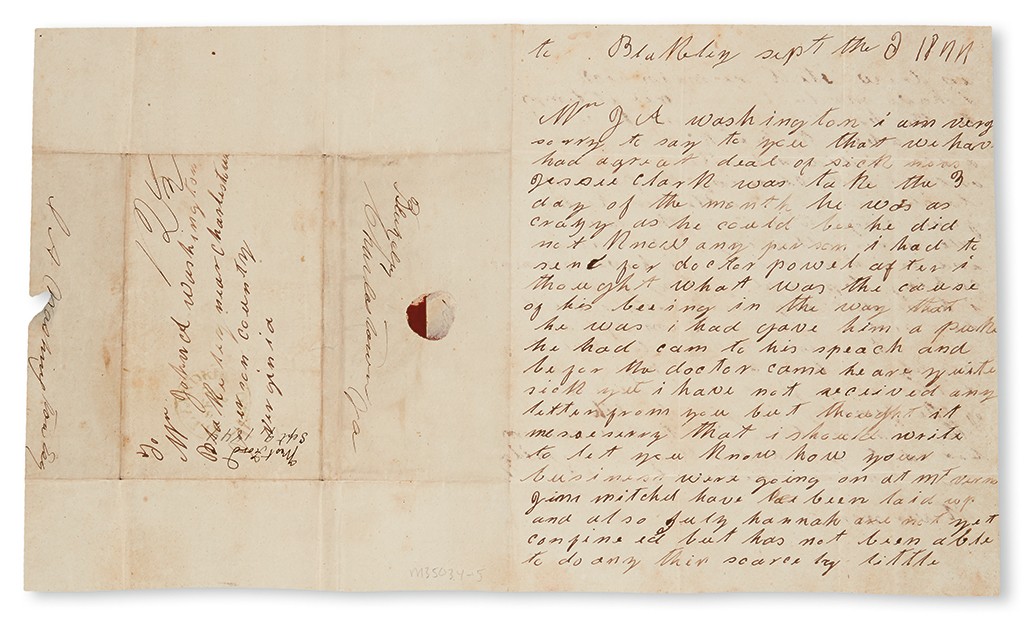 to Blakeley sept the 2 1844
Mr J A washington i am very
sorry to say to you that we hav
had agreat deal of sick
Jessie Clark was take the 3
day of the month he was as
crazy as he could be he did
not Know any person i had to
send for doctor powel after i
thought what was the cause
of his beeing in the way that
he was i had gave him a puke
he had cam to his speach and
be for the doctor came heare quite
sick yet i have not received any
letter from you but thought it
that i should write
to let you Know how your
business were going on at mt verno
Jim mitchel have been laid up
and also July hannah are not yet
confine ed but has not been able
to do any thin scarce by little
12½
To
Mr John A washington
Blakeley near Charlestown
county
virginia
Sept
Blakeley
Charlestown Va
J A Washington
M35034-5